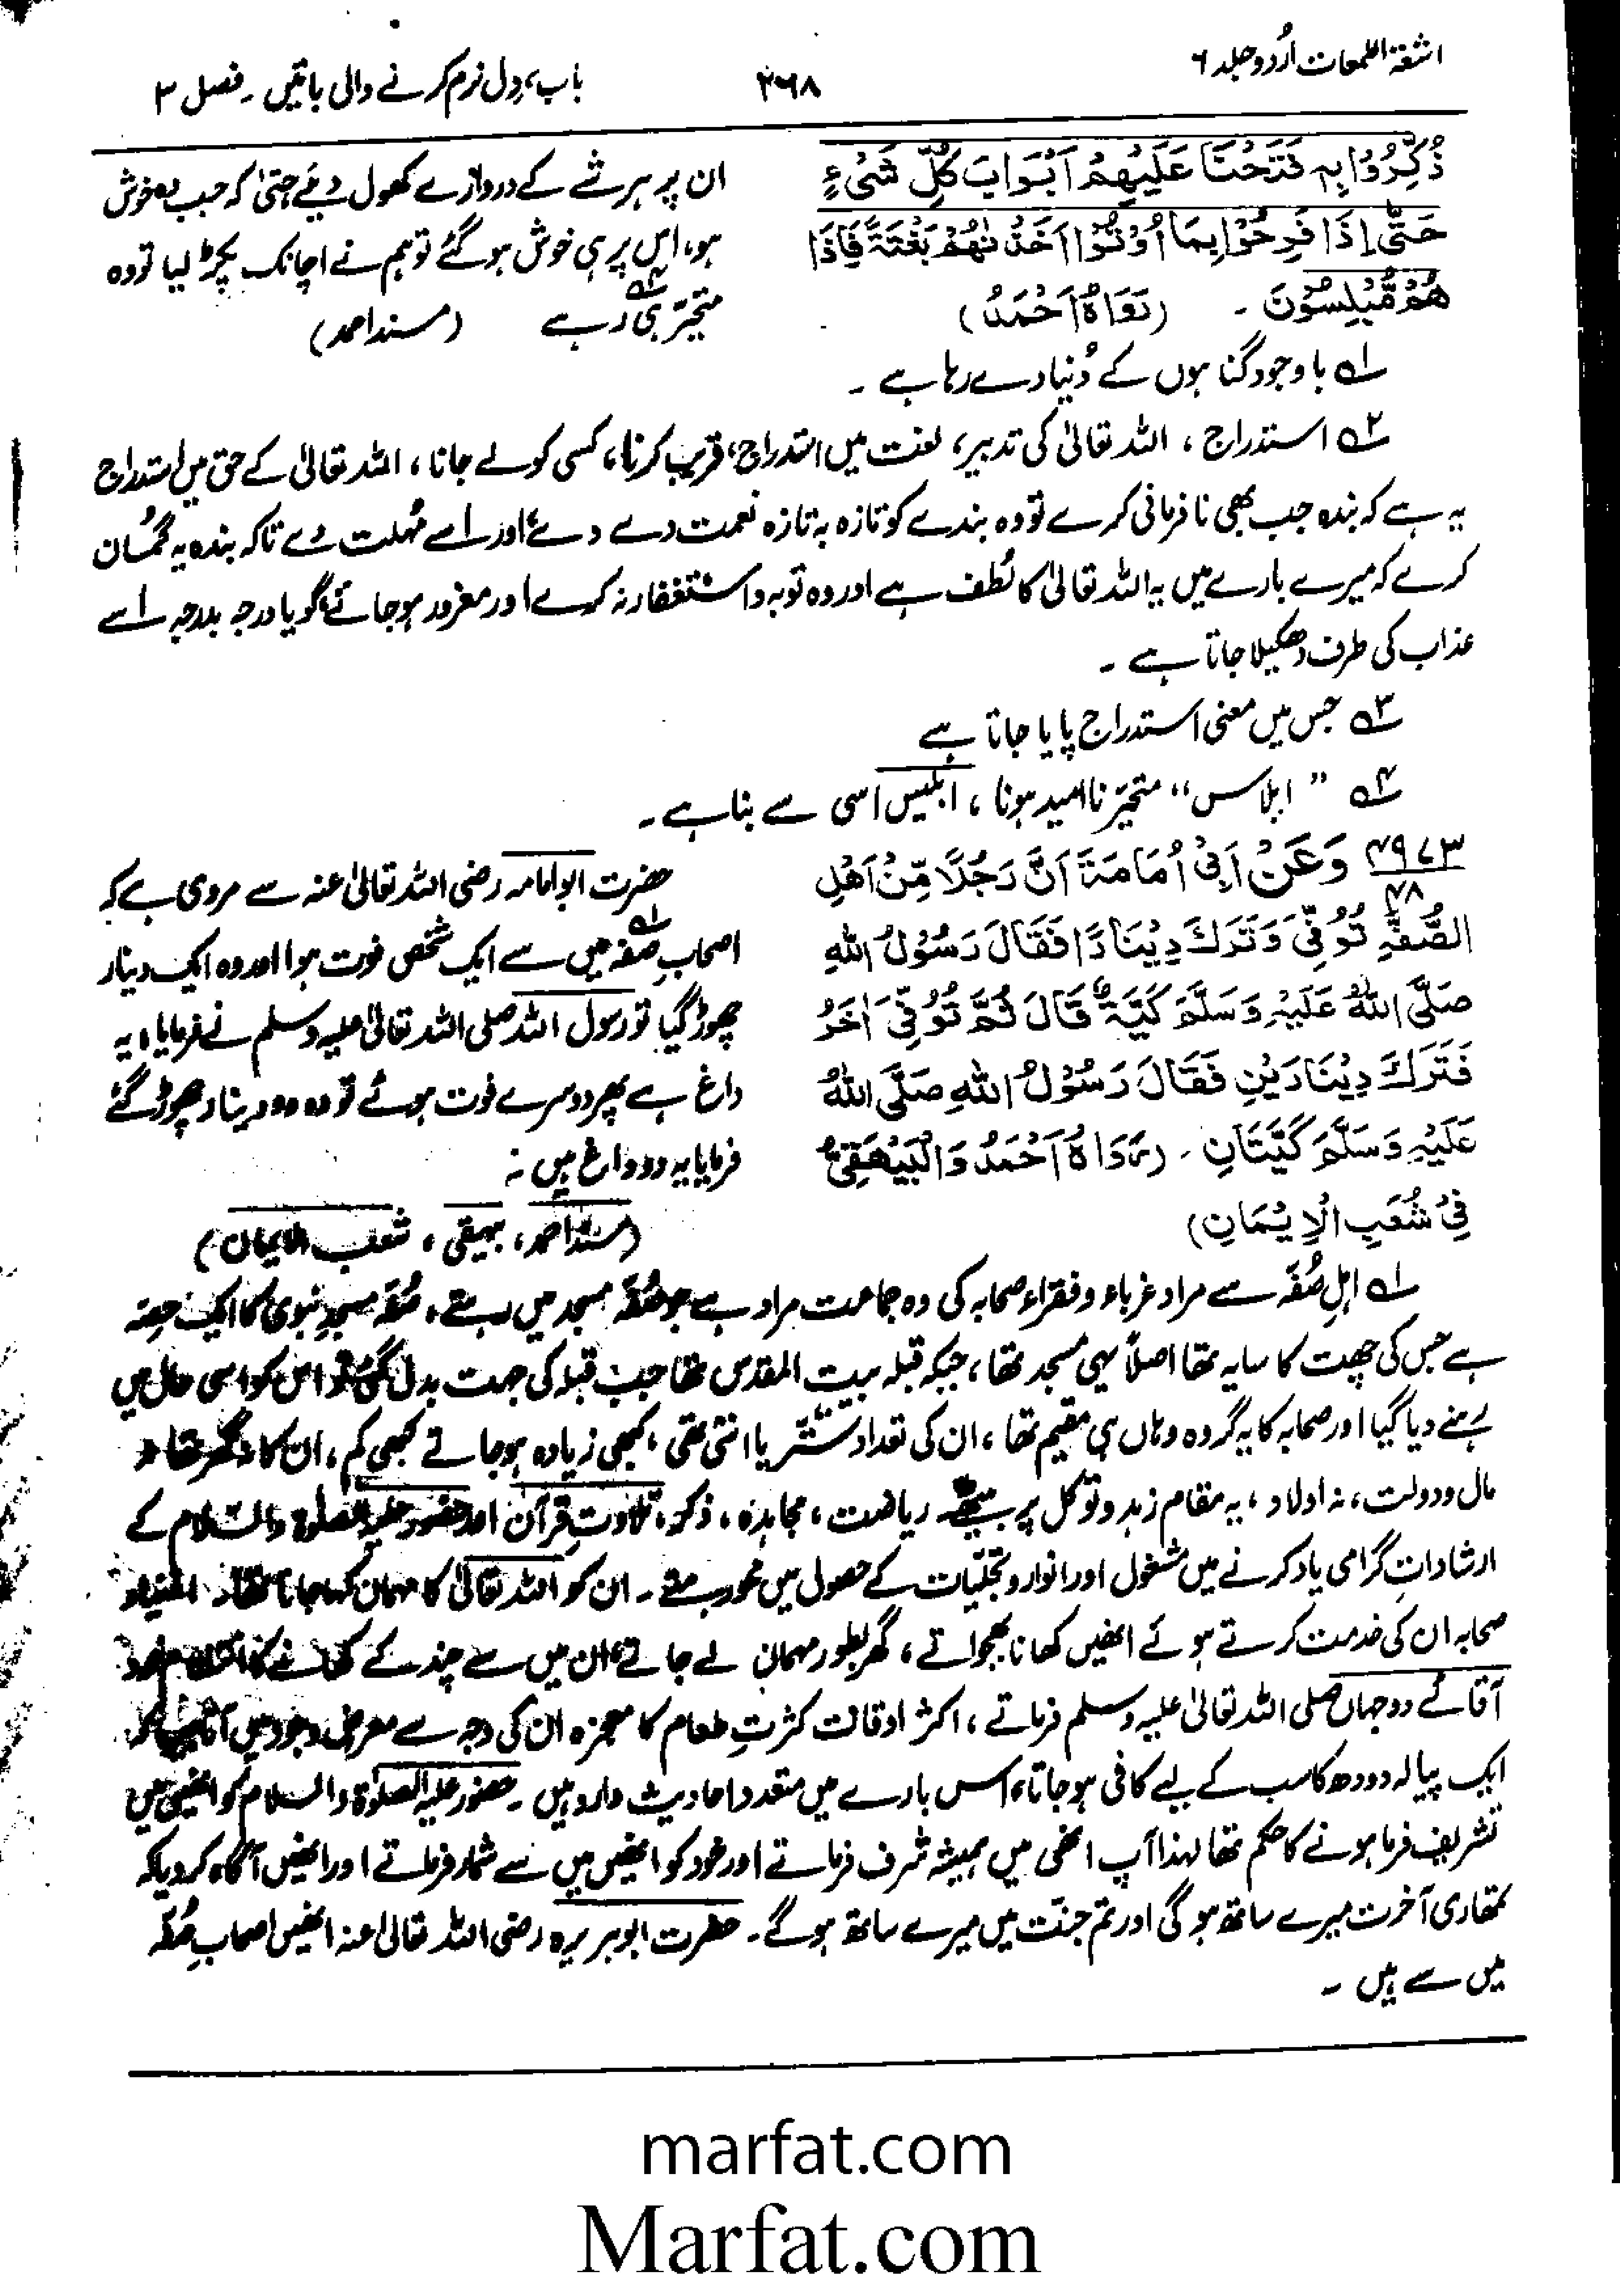 اشعة اللمعات اُردو جلد ۶
۲۶۸
باب، دِل نرم کرنے والی باتیں ۔ فصل ۳
ذُكِّرُوْا بِهٖ فَتَحْنَا عَلَيْهِمْ اَبْوَابَ كُلِّ شَيْءٍ
حَتّٰى اِذَا فَرِحُوْا بِمَا اُوْتُوْا اَخَذْنٰهُمْ بَغْتَةً فَاِذَا
هُمْ مُّبْلِسُوْنَ ۔ (رَوَاهُ اَحْمَدُ)
ان پر ہر شے کے دروازے کھول دیئے حتیٰ کہ جب وہ خوش
ہو، اس پر ہی خوش ہو گئے تو ہم نے اچانک پکڑ لیا تو وہ
متحیّر ہی رہے ۴؎ (مسند احمد)
۱؎ باوجود گناہوں کے دُنیا دے رہا ہے ۔
۲؎ استدراج ، اللہ تعالیٰ کی تدبیر، لغت میں استدراج، قریب کرنا، کسی کو لے جانا ، اللہ تعالیٰ کے حق میں استدراج
یہ ہے کہ بندہ جب بھی نافرمانی کرے تو وہ بندے کو تازہ بہ تازہ نعمت دے دے اور اسے مُہلت دے تاکہ بندہ یہ گمُان
کرے کہ میرے بارے میں یہ اللہ تعالیٰ کا لُطف ہے اور وہ توبہ و استغفار نہ کرے اور مغرور ہو جائے گویا درجہ بدرجہ اسے
عذاب کی طرف دھکیلا جاتا ہے ۔
۳؎ جس میں معنی استدراج پایا جاتا ہے
۴؎ " ابلاس" متحیّر نا امید ہونا ، ابلیس اسی سے بنا ہے ۔
۴۹۷۳
۴۸
وَعَنْ اَبِيْ اُمَامَةَ اَنَّ رَجُلًا مِّنْ اَهْلِ
الصُّفَّةِ تُوُفِّيَ وَتَرَكَ دِيْنَارًا فَقَالَ رَسُوْلُ اللهِ
صَلَّى اللهُ عَلَيْهِ وَسَلَّمَ كَيَّةٌ قَالَ ثُمَّ تُوُفِّيَ اٰخَرُ
فَتَرَكَ دِيْنَارَيْنِ فَقَالَ رَسُوْلُ اللهِ صَلَّى اللهُ
عَلَيْهِ وَسَلَّمَ كَيَّتَانِ ۔ (رَوَاهُ اَحْمَدُ وَالْبَيْهَقِيُّ
فِيْ شُعَبِ الْاِيْمَانِ)
حضرت ابوامامہ رضی اللہ تعالیٰ عنہ سے مروی ہے کہ
اصحابِ صفہ ۱؎ میں سے ایک شخص فوت ہوا اور وہ ایک دینار
چھوڑ گیا تو رسول اللہ صلی اللہ تعالیٰ علیہ وسلم نے فرمایا، یہ
داغ ہے پھر دوسرے فوت ہوئے تو وہ دو دینار چھوڑ گئے
فرمایا یہ دو داغ ہیں :
(مسند احمد، بیہقی ، شعب الایمان)
۱؎ اہلِ صُفّہ سے مراد غرباء و فقراء صحابہ کی وہ جماعت مراد ہے جو صُفّہ مسجد میں رہتے ، صُفّہ مسجدِ نبوی کا ایک حِصّہ
ہے جس کی چھت کا سایہ تھا اصلاً یہی مسجد تھا، جبکہ قبلہ بیت المقدس تھا جب قبلہ کی جہت بدل گئی تو اس کو اسی حال میں
رہنے دیا گیا اور صحابہ کا یہ گروہ وہاں ہی مقیم تھا ، ان کی تعداد ستّر یا اسّی تھی ، کبھی زیادہ ہو جاتے کبھی کم ، ان کا نہ گھر تھا نہ
مال و دولت، نہ اولاد ، یہ مقام زہد و توکل پر بیٹھے ریاضت ، مجاہدہ ، ذکر، تلاوتِ قرآن اور حضور علیہ الصلوٰۃ والسّلام کے
ارشاداتِ گرامی یاد کرنے میں مشغول اور انوار و تجلّیات کے حصول میں محو رہتے ۔ ان کو اللہ تعالیٰ کا مہمان کہا جاتا تھا۔ اغنیاء
صحابہ ان کی خدمت کرتے ہوئے انھیں کھانا بھجواتے ، گھر بطور مہمان لے جاتے ان میں سے چند کے کھانے کا
آقائے دوجہاں صلی اللہ تعالیٰ علیہ وسلم فرماتے ، اکثر اوقات کثرتِ طعام کا معجزہ ان کی وجہ سے معرضِ وجود میں
ایک پیالہ دودھ کا سب کے لیے کافی ہو جاتا، اس بارے میں متعدد احادیث وارد ہیں ۔ حضور علیہ الصلوٰۃ والسلام کو انھیں میں
تشریف فرما ہونے کا حکم تھا لہذا آپ انھی میں ہمیشہ شرف فرماتے اور خود کو انھیں میں سے شمار فرماتے اور انھیں آگاہ کر دیا کہ
تمھاری آخرت میرے ساتھ ہو گی اور تم جنّت میں میرے ساتھ ہو گے ۔ حضرت ابوہریرہ رضی اللہ تعالیٰ عنہ انھیں اصحابِ صُفّہ
میں سے ہیں ۔
marfat.com
Marfat.com